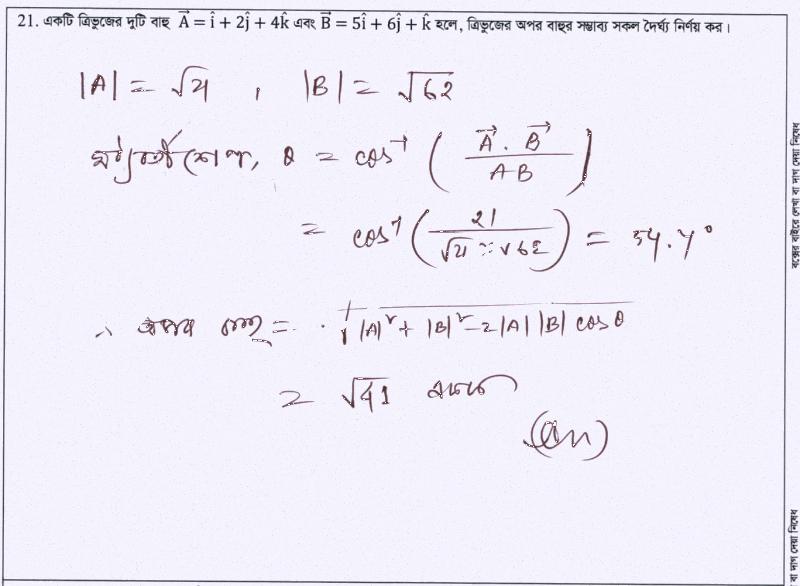 21. একটি ত্রিভুজের দুটি বাহু A⃗ = î + 2ĵ + 4k̂ এবং B⃗ = 5î + 6ĵ + k̂ হলে, ত্রিভুজের অপর বাহুর সম্ভাব্য সকল দৈর্ঘ্য নির্ণয় কর।
|A| = √21 , |B| = √62
মধ্যবর্তী কোণ, θ = cos⁻¹ ( A⃗ . B⃗ / AB )
= cos⁻¹ ( 21 / √21 × √62 ) = 54.4°
∴ অপর বাহু = √|A|² + |B|² - 2|A||B| cos θ
= √41 একক
(Ans)
বক্সের বাইরে লেখা বা দাগ দেয়া নিষেধ
বা দাগ দেয়া নিষেধ